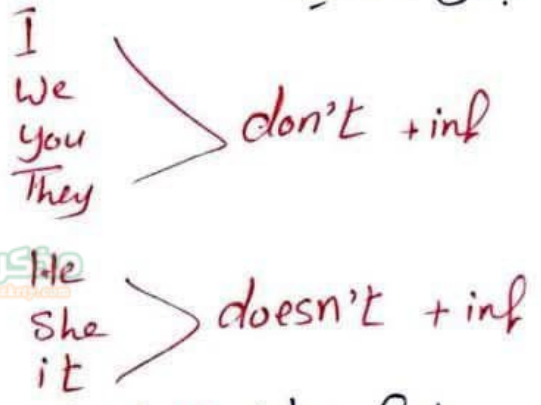 I
We
you
They
don't + inf
He
She
it
doesn't + inf